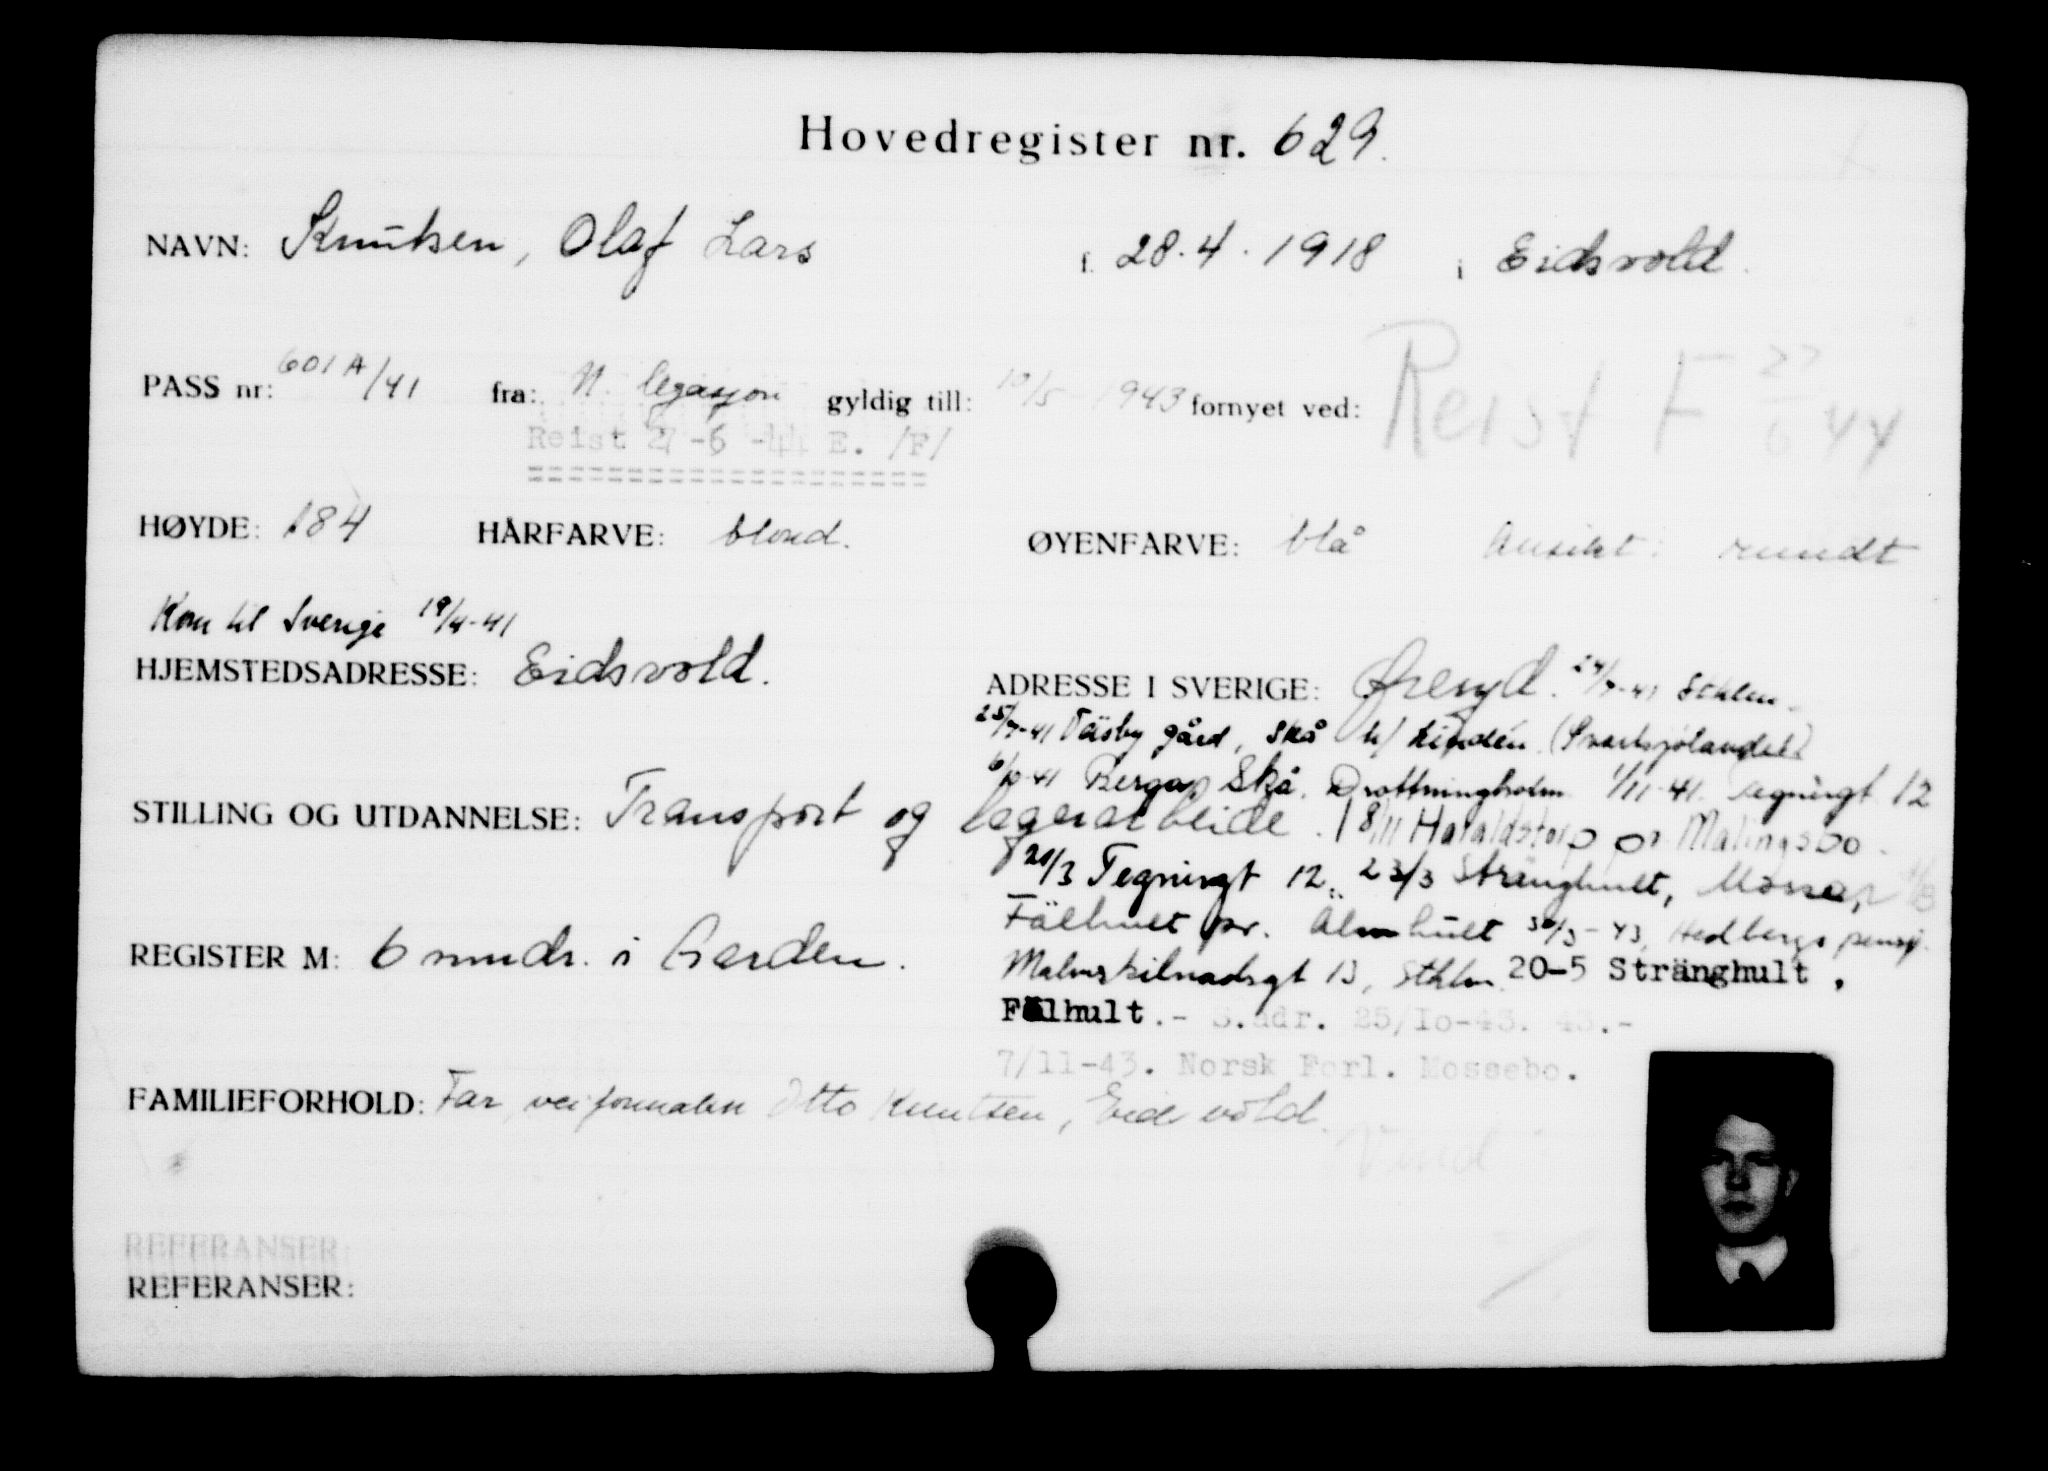 Hovedregister nr. 629.
NAVN: Knutsen, Olaf Lars f. 28.4.1918 i Eidsvold.
PASS nr: 601A/41 fra: N. legasjon gyldig till: 10/5 1943 fornyet ved: Reist F 27/6 44
Reist 27-6-44 E. /F/
HØYDE: 184 HÅRFARVE: blond. ØYENFARVE: blå Ansikt: rundt
Kom til Sverige 19/4-41
HJEMSTEDSADRESSE: Eidsvold.
ADRESSE I SVERIGE: Øreryd. 24/7-41 Sthlm.
25/7-41 Väsby gård, Skå h/ Lindén (Svartsjölandet)
6/10-41 Berga, Skå. Drottningholm 1/11-41. Tegnérgt 12
STILLING OG UTDANNELSE: Transport og lagerarbeide. 18/11 Haraldstorp pr Malingsbo.
20/3 Tegnérgt 12. 23/3 Stränghult,
Fälhult pr. Älmhult 30/3-43, Hedbergs pensj.
REGISTER M: 6 mndr. i Garden.
Malmskilnadsgt 13, Sthlm. 20-5 Stränghult,
Fälhult.- S.adr. 25/10-43. 43.-
7/11-43. Norsk Forl. Mossebo.
FAMILIEFORHOLD: Far, veiformann Otto Knutsen, Eidsvold.
Vend
REFERANSER:
REFERANSER: